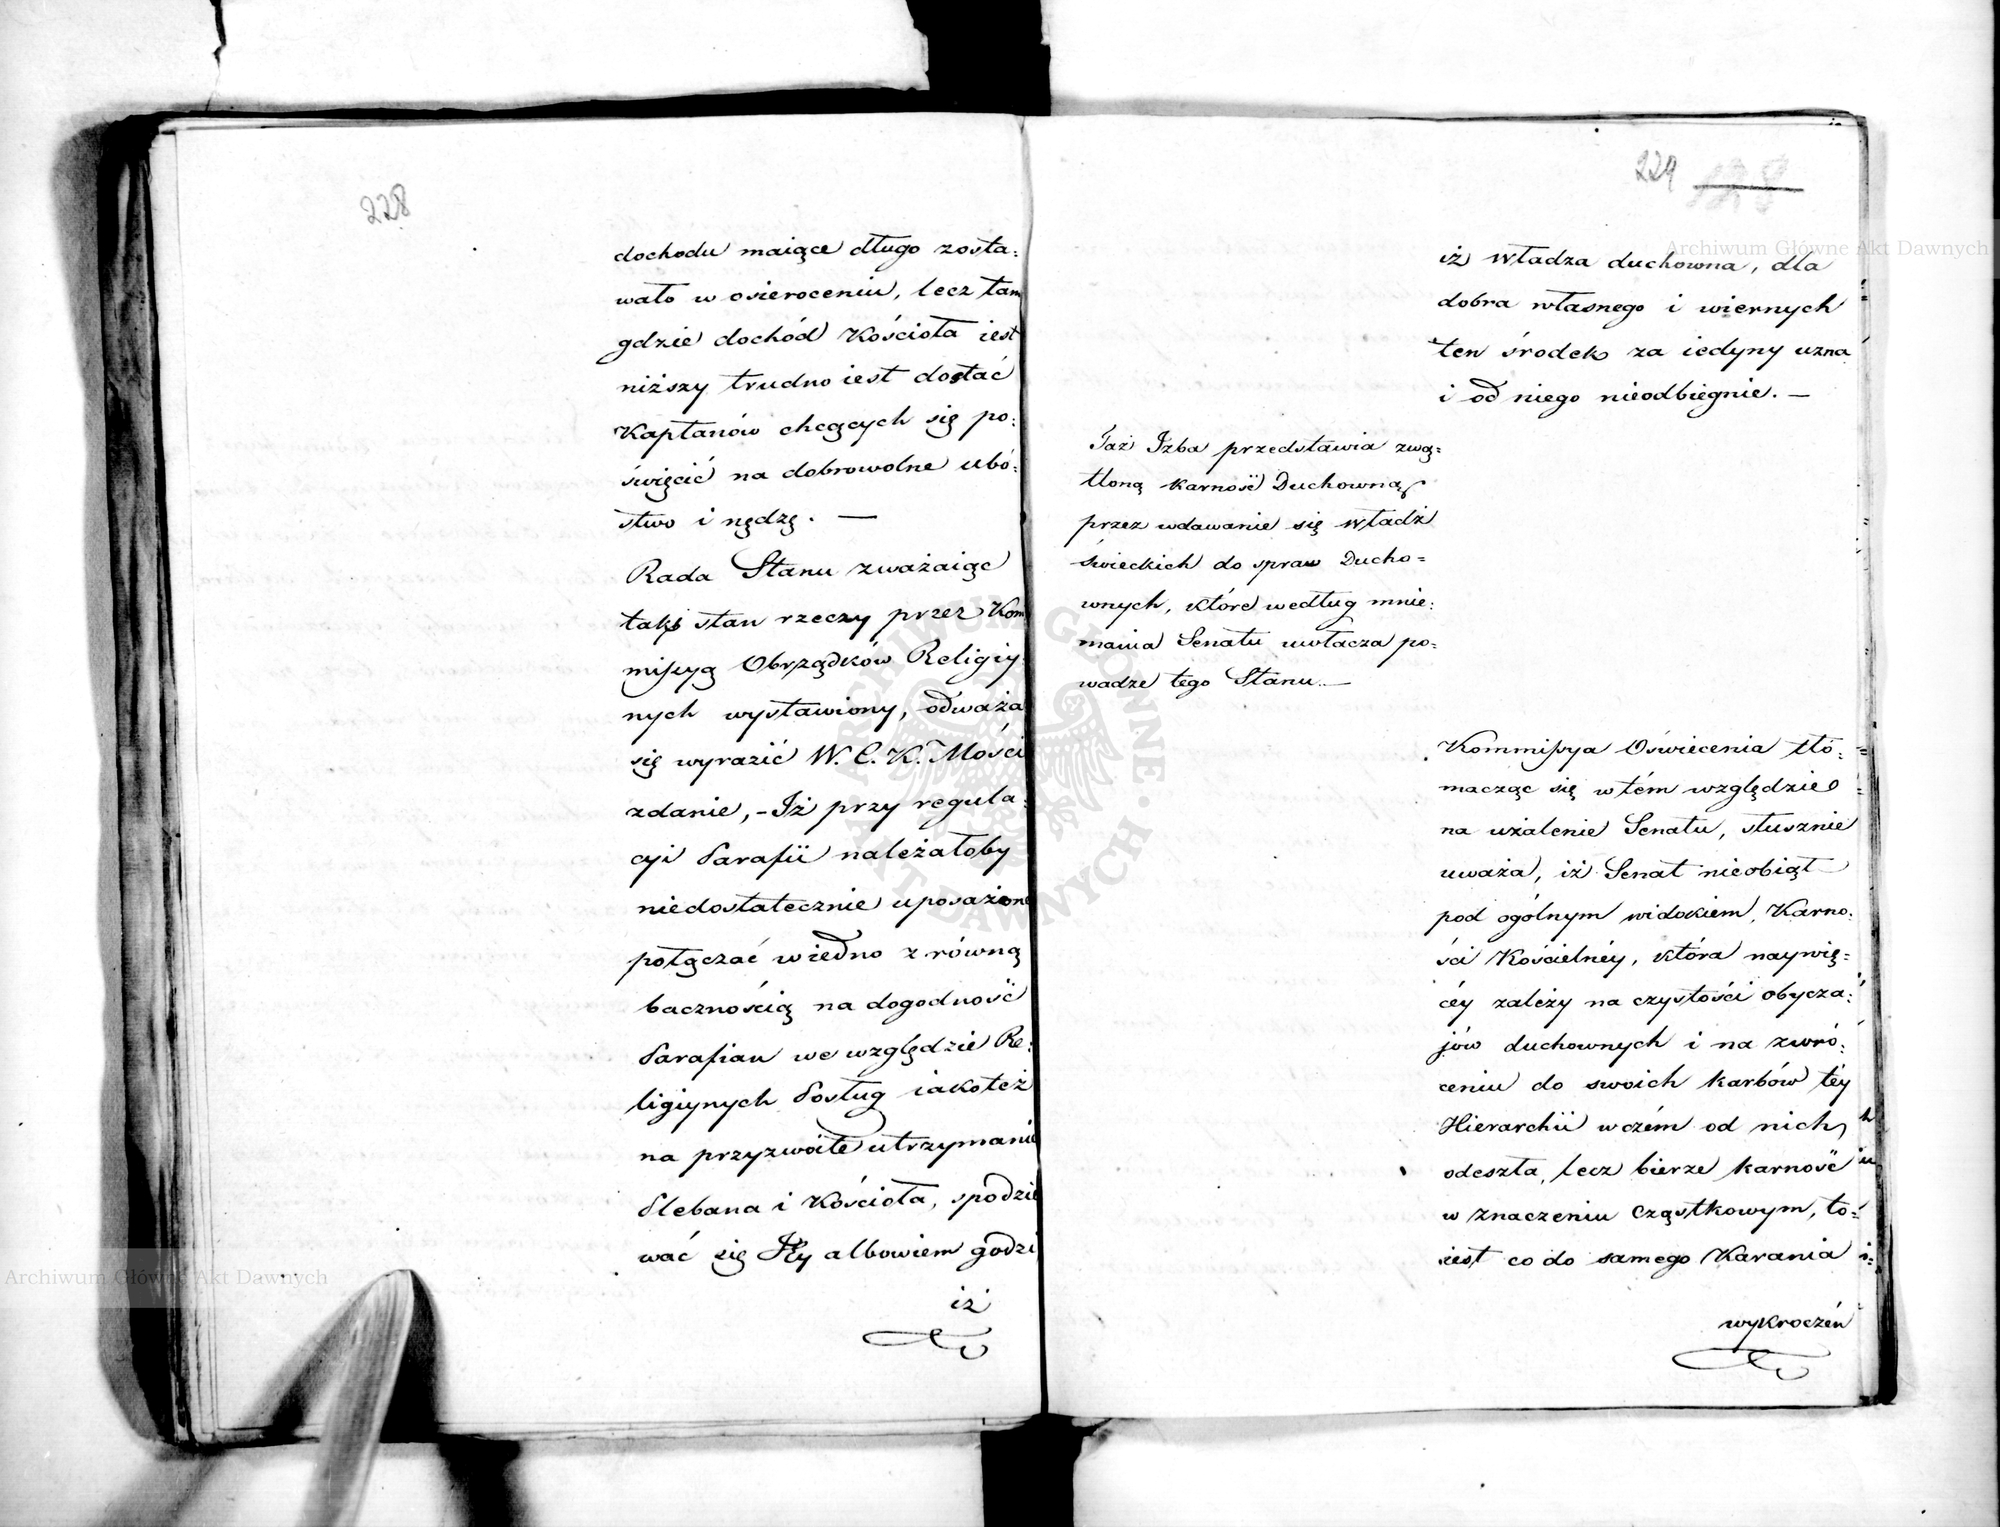 228
dochodu maiące długo zosta=
wało w osieroceniu, lecz tam
gdzie dochód Kościoła iest
niższy trudno iest dostać
Kapłanów chcących się po=
święcić na dobrowolne ubó=
stwo i nędzę. —
Rada Stanu zważaiąc
taki stan rzeczy przez Kom
missyą Obrządków Religiy=
nych wystawiony, odważa
się wyrazić W. C. K. Mości
zdanie, – Iż przy regula=
cyi Parafii należałoby
niedostatecznie uposażone
połączać wiedno z równą
bacznością na dogodność
Parafian we względzie Re=
ligiynych Posług iakoteż
na przyzwoite utrzymanie
Plebana i Kościoła, spodzie
wać się albowiem godzi
iż
229 128
iż Władza duchowna, dla
dobra własnego i wiernych
ten środek za iedyny uzna
i od niego nieodbiegnie. —
Taż Izba przedstawia zwą=
tloną karność Duchowną
przez wdawanie się Władz
świeckich do spraw Ducho=
wnych, które według mnie=
mania Senatu uwłacza po=
wadze tego Stanu. —
Kommissya Oświecenia tło=
macząc się w tém względzie
na użalenie Senatu, słusznie
uważa, iż Senat nieobiął
pod ogólnym widokiem, Karno=
ści Kościelnéy, która naywię=
céy zależy na czystości obycza=
jów duchownych i na zwró=
ceniu do swoich karbów téy
Hierarchii w czém od nich
odeszła, lecz bierze karność
w znaczeniu cząstkowym, to=
iest co do samego Karania
wykroczeń
Archiwum Główne Akt Dawnych
Archiwum Główne Akt Dawnych
ARCHIWUM GŁÓWNE · AKT DAWNYCH ·